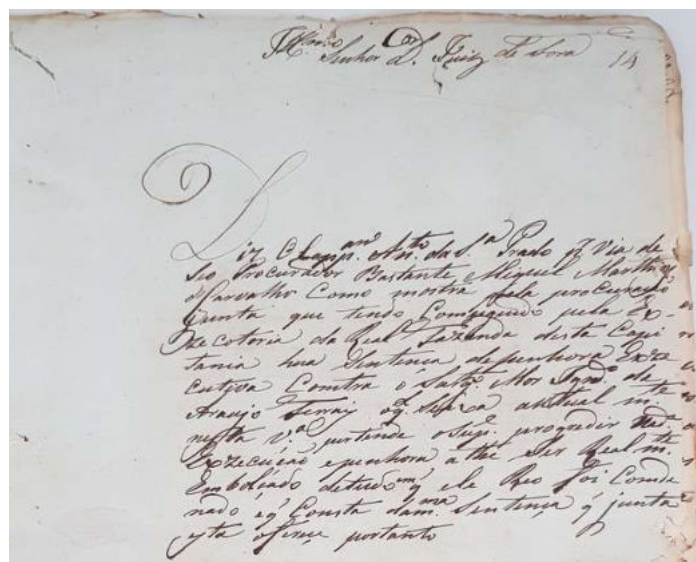 Ill.mo Senhor D.or Juiz de Fora 14
Diz O Cap.am An.to da S.a Prado p.r Via de
Seo Procurador Bastante Miguel Marthis
d'Carvalho Como mostra pela procuração
junta que tendo Conseguido pela Ex-
zecotoria da Real Fazenda desta Capi
tania hua Sentença de penhora Exze
cutiva Comtra o Sarg.to Mor Ign.o de
Araujo Ferraz q. Se axa auttual m.te
nesta v.a pertende o Sup. progredir
Exzecução e penhora athe Ser Real m.te
Embolçado de tudo q ele Reo foi Conde
nado e q Consta da m.ma Sentença q junta
esta ofreçe portanto